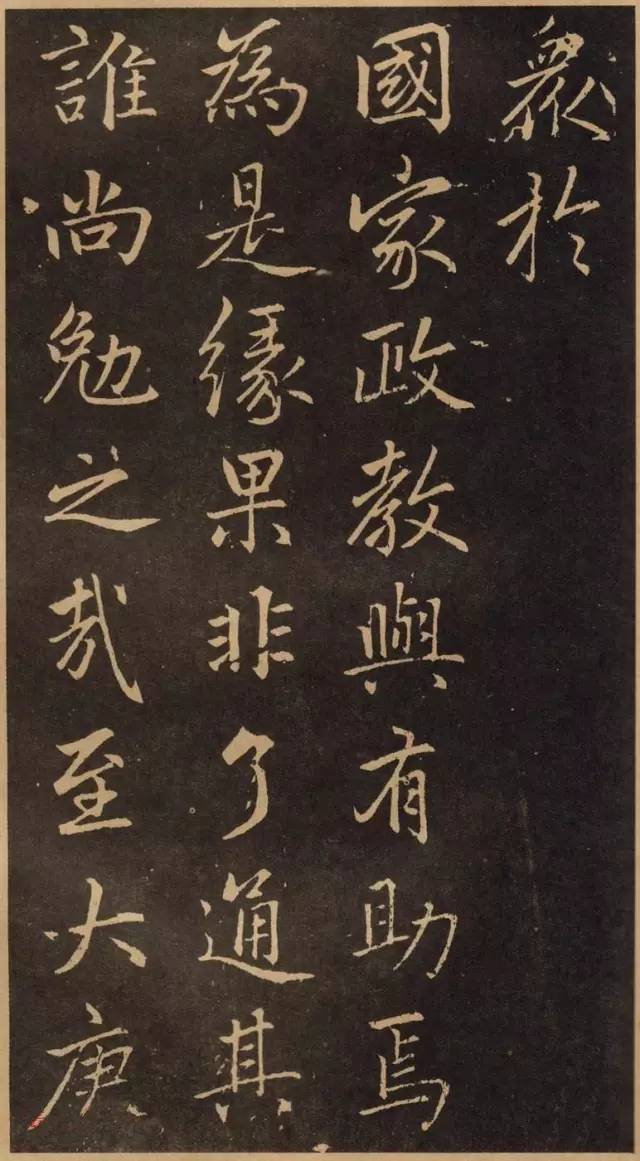 眾於
國家政教與有助焉
為是緣果非了通其
誰尚勉之哉至大庚